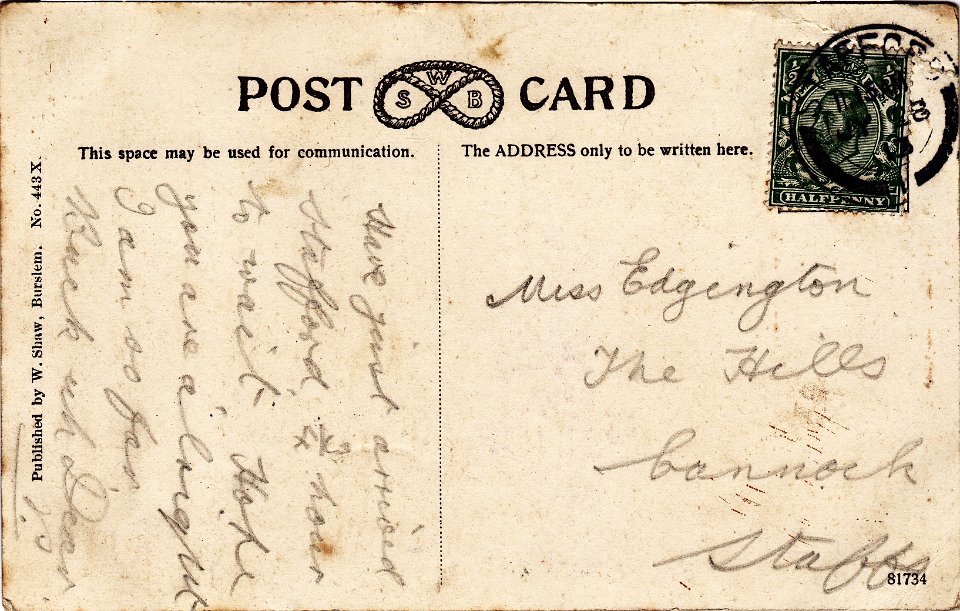 POST CARD
S W B
This space may be used for communication.
The ADDRESS only to be written here.
HALFPENNY
Published by W. Shaw, Burslem. No. 443 X.
Have just arrived
Stafford ¾ hour
to wait. Hope
you are alright
I am so far
Buck up Dear
Miss Edgington
The Hills
Cannock
Staffs
81734